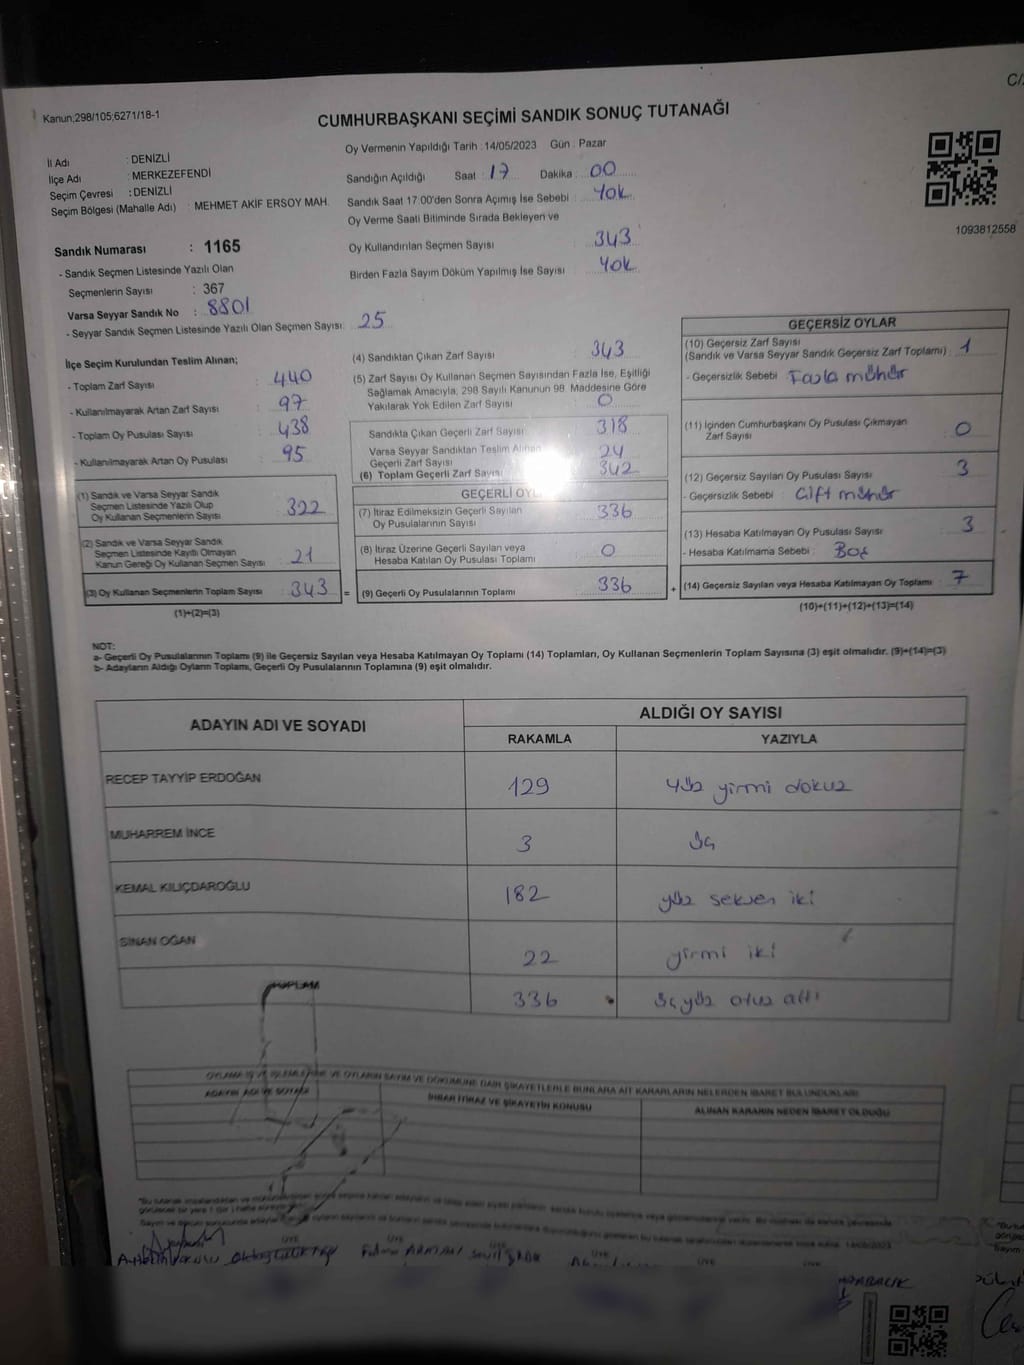 C/
Kanun;298/105;6271/18-1
CUMHURBAŞKANI SEÇİMİ SANDIK SONUÇ TUTANAĞI
İl Adı : DENİZLİ
İlçe Adı : MERKEZEFENDİ
Seçim Çevresi : DENİZLİ
Seçim Bölgesi (Mahalle Adı) : MEHMET AKİF ERSOY MAH.
Oy Vermenin Yapıldığı Tarih : 14/05/2023 Gün : Pazar
Sandığın Açıldığı Saat : 17 Dakika : 00
Sandık Saat 17.00'den Sonra Açımış İse Sebebi : Yok
Oy Verme Saati Bitiminde Sırada Bekleyen ve
Oy Kullandırılan Seçmen Sayısı : 343
Birden Fazla Sayım Döküm Yapılmış İse Sayısı : Yok
1093812558
Sandık Numarası : 1165
- Sandık Seçmen Listesinde Yazılı Olan
Seçmenlerin Sayısı : 367
Varsa Seyyar Sandık No : 8801
- Seyyar Sandık Seçmen Listesinde Yazılı Olan Seçmen Sayısı: 25
İlçe Seçim Kurulundan Teslim Alınan;
- Toplam Zarf Sayısı : 440
- Kullanılmayarak Artan Zarf Sayısı : 97
- Toplam Oy Pusulası Sayısı : 438
- Kullanılmayarak Artan Oy Pusulası : 95
(1) Sandık ve Varsa Seyyar Sandık
Seçmen Listesinde Yazılı Olup
Oy Kullanan Seçmenlerin Sayısı : 322
(2) Sandık ve Varsa Seyyar Sandık
Seçmen Listesinde Kayıtlı Olmayan
Kanun Gereği Oy Kullanan Seçmen Sayısı : 21
(3) Oy Kullanan Seçmenlerin Toplam Sayısı : 343 =
(1)+(2)=(3)
(4) Sandıktan Çıkan Zarf Sayısı : 343
(5) Zarf Sayısı Oy Kullanan Seçmen Sayısından Fazla İse, Eşitliği
Sağlamak Amacıyla; 298 Sayılı Kanunun 98. Maddesine Göre
Yakılarak Yok Edilen Zarf Sayısı : 0
Sandıkta Çıkan Geçerli Zarf Sayısı : 318
Varsa Seyyar Sandıktan Teslim Alınan
Geçerli Zarf Sayısı 24
(6) Toplam Geçerli Zarf Sayısı 342
GEÇERLİ OYLAR
(7) İtiraz Edilmeksizin Geçerli Sayılan
Oy Pusulalarının Sayısı : 336
(8) İtiraz Üzerine Geçerli Sayılan veya
Hesaba Katılan Oy Pusulası Toplamı : 0
(9) Geçerli Oy Pusulalarının Toplamı : 336 +
GEÇERSİZ OYLAR
(10) Geçersiz Zarf Sayısı
(Sandık ve Varsa Seyyar Sandık Geçersiz Zarf Toplamı) : 1
- Geçersizlik Sebebi : Fazla mühür
(11) İçinden Cumhurbaşkanı Oy Pusulası Çıkmayan
Zarf Sayısı : 0
(12) Geçersiz Sayılan Oy Pusulası Sayısı : 3
- Geçersizlik Sebebi : Çift mühür
(13) Hesaba Katılmayan Oy Pusulası Sayısı : 3
- Hesaba Katılmama Sebebi : Boş
(14) Geçersiz Sayılan veya Hesaba Katılmayan Oy Toplamı : 7
(10)+(11)+(12)+(13)=(14)
NOT:
a- Geçerli Oy Pusulalarının Toplamı (9) ile Geçersiz Sayılan veya Hesaba Katılmayan Oy Toplamı (14) Toplamları, Oy Kullanan Seçmenlerin Toplam Sayısına (3) eşit olmalıdır. (9)+(14)=(3)
b- Adayların Aldığı Oyların Toplamı, Geçerli Oy Pusulalarının Toplamına (9) eşit olmalıdır.
ADAYIN ADI VE SOYADI
ALDIĞI OY SAYISI
RAKAMLA YAZIYLA
RECEP TAYYİP ERDOĞAN 129 yüz yirmi dokuz
MUHARREM İNCE 3 üç
KEMAL KILIÇDAROĞLU 182 yüz seksen iki
SİNAN OĞAN 22 yirmi iki
TOPLAM 336 üçyüz otuz altı
OYLAMA İŞ VE İŞLEMLERİNE VE OYLARIN SAYIM VE DÖKÜMÜNE DAİR ŞİKAYETLERLE BUNLARA AİT KARARLARIN NELERDEN İBARET BULUNDUKLARI
ADAYIN ADI VE SOYADI
İHBAR İTİRAZ VE ŞİKAYETİN KONUSU
ALINAN KARARIN NEDEN İBARET OLDUĞU
ÜYE ÜYE ÜYE ÜYE ÜYE